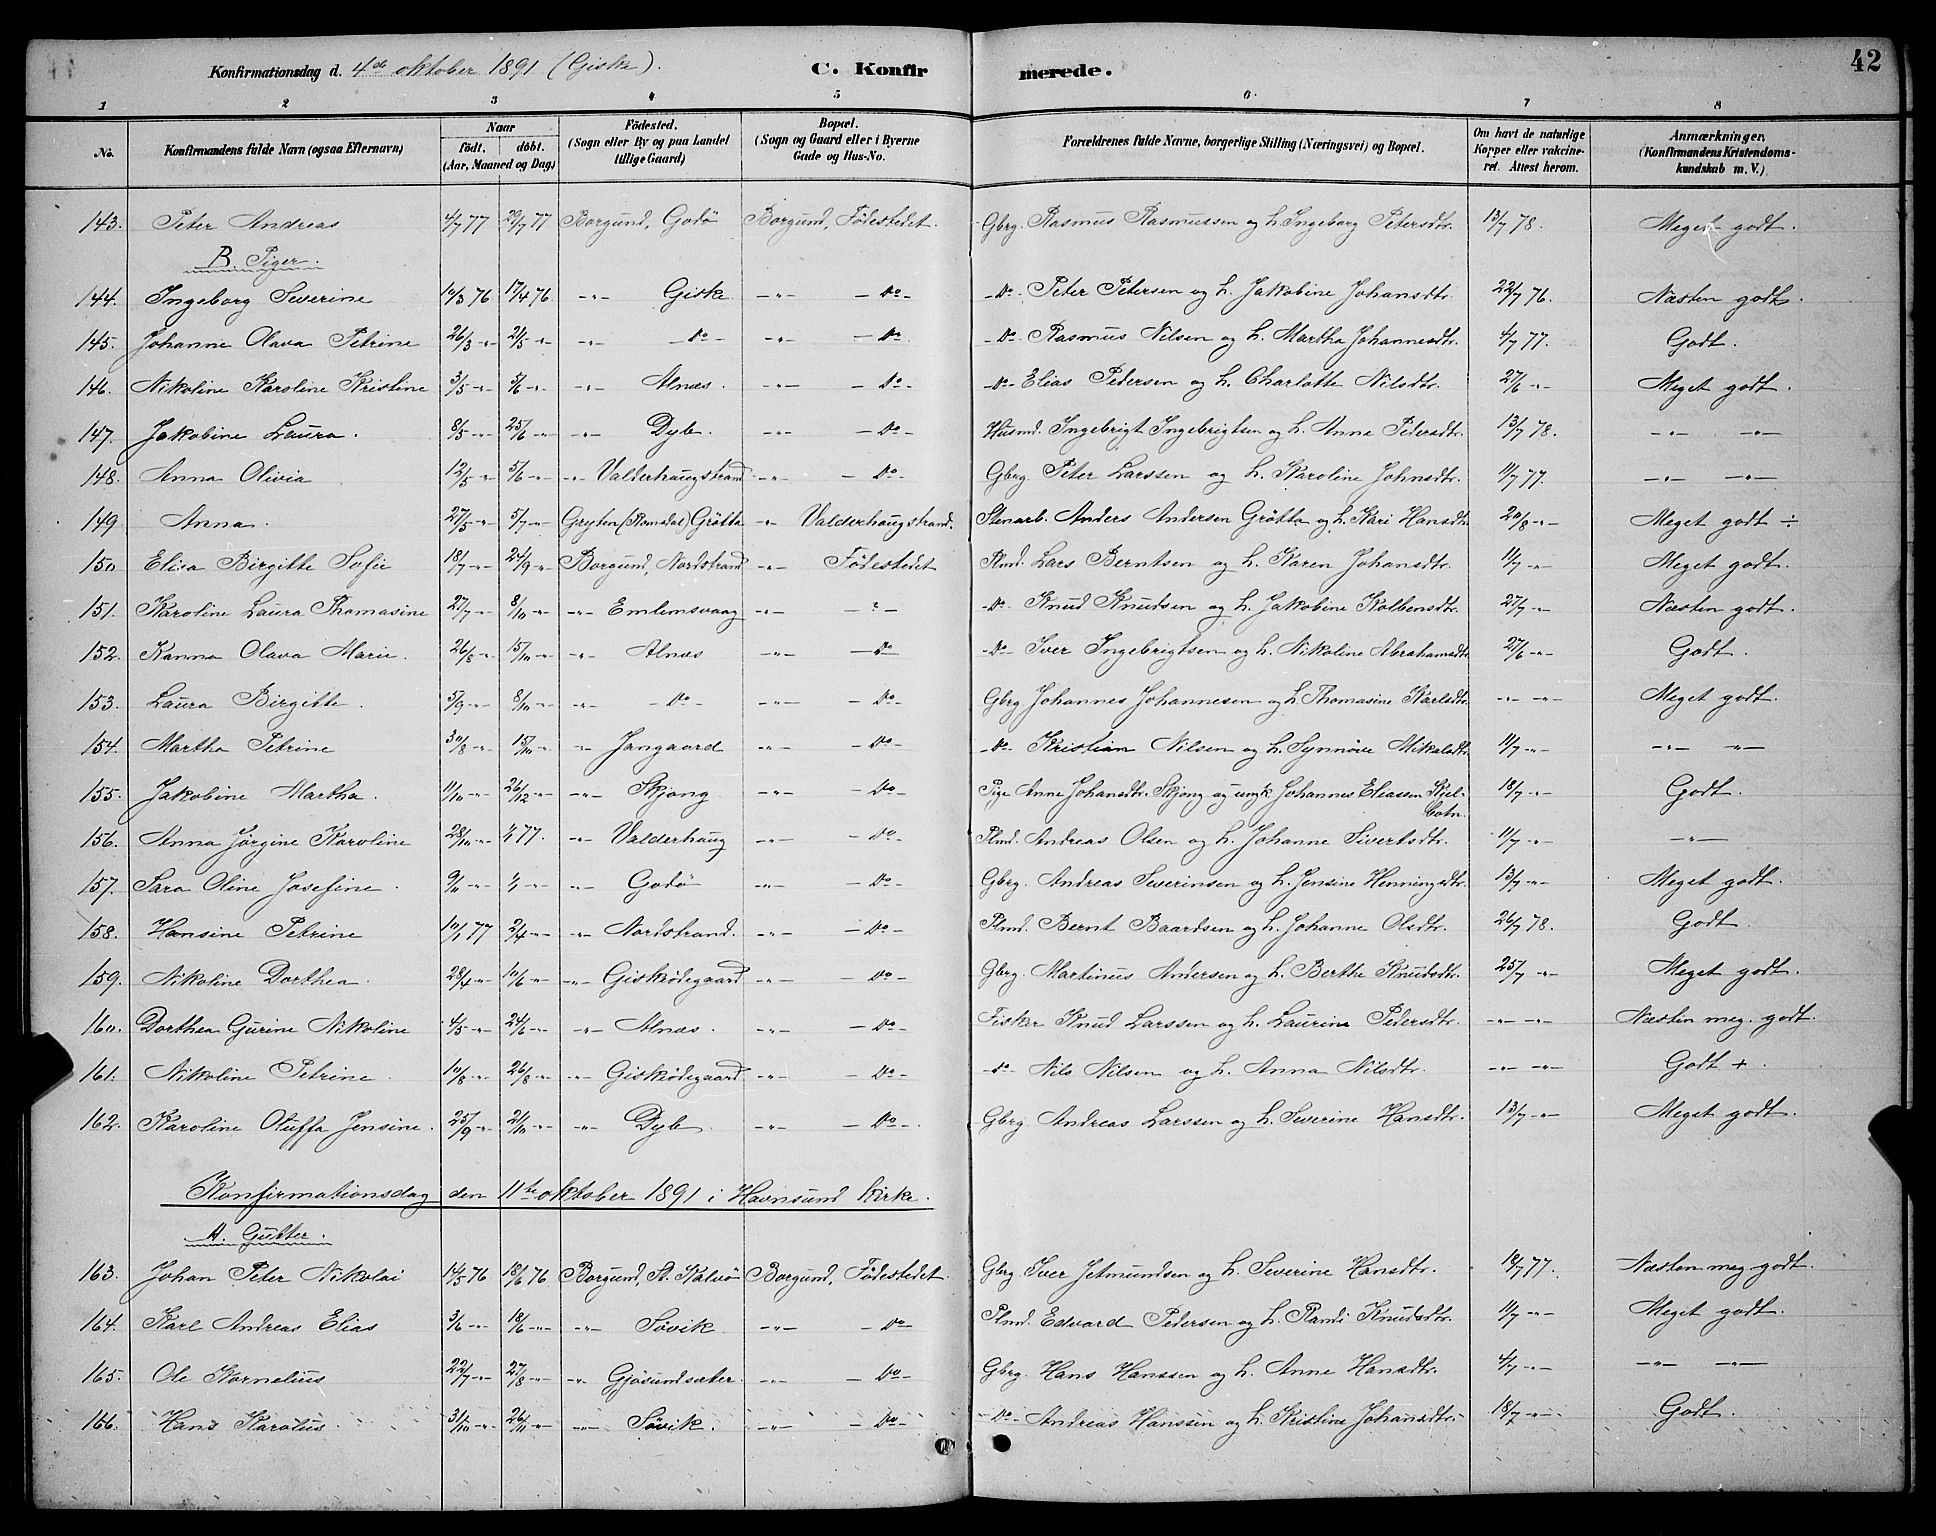 Konfirmationsdag d. 4de oktober 1891 (Giske). C. Konfirmerede. 42
1 2 3 4 5 6 7 8
No. Konfirmandens fulde Navn (ogsaa Efternavn) Naar födt. döbt. (Aar, Maaned og Dag) Födested. (Sogn eller By og paa Landet tillige Gaard) Bopæl. (Sogn og Gaard eller i Byerne Gade og Hus-No. Forældrenes fulde Navne, borgerlige Stilling (Næringsvei) og Bopæl. Om havt de naturlige Kopper eller vakcineret. Attest herom. Anmærkninger, (Konfirmandens Kristendomskundskab m. V.)
143. Peter Andreas 4/7 77 29/7 77 Borgund, Godö Borgund, Fødestedet. Gbrg. Rasmus Rasmussen og h. Ingeborg Petersdtr. 13/7 78. Meget godt.
B. Piger.
144. Ingeborg Severine 10/3 76 17/4 76 -"- Giske -"- -do- -do- Peter Petersen og h. Jakobine Johansdtr. 22/7 76. Næsten godt.
145. Johanne Olava Petrine 26/3 -"- 21/5 -"- -"- -do- -"- -do- -do- Rasmus Nilsen og h. Martha Johannesdtr. 4/7 77. Godt.
146. Nikoline Karoline Kristine 3/5 -"- 5/6 -"- -"- Alnæs. -"- -do- -do- Elias Pedersen og h. Charlotte Nilsdtr. 27/6 -"- Meget godt.
147. Jakobine Laura. 8/5 -"- 25/6 -"- -"- Dyb. -"- -do- Husmd. Ingebrigt Ingebrigtsen og h. Anne Pedersdtr. 13/7 78. -"- -"-
148. Anna Olivia 12/5 -"- 5/6 -"- -"- Valderhaugstrand -"- -do- Gbrg. Peter Larssen og h. Karoline Johnsdtr. 11/7 77. -"- -"-
149. Anna. 27/5 -"- 5/7 -"- Gryten (Romsdal) Grötta -"- Valderhaugstrand. Stenarb. Anders Andersen Grötta og h. Kari Hansdtr. 20/8 -"- Meget godt ÷
150 Elisa Birgitte Sofie 18/7 -"- 24/9 -"- Borgund, Nordstrand -"- Fødestedet Plmd. Lars Berntsen og h. Karen Johansdtr. 11/7 -"- Meget godt.
151. Karoline Laura Thomasine 27/7 -"- 8/10 -"- -"- Emlemsvaag -"- -?- -do- Knud Knudsen og h. Jakobine Kolbensdtr. 27/7 -"- Næsten godt.
152. Kanna Olava Marie. 26/8 -"- 15/10 -"- -"- Alnæs -"- -do- -do- Iver Ingebrigtsen og h. Nikoline Abrahamsdtr. 27/6 -"- Godt.
153. Laura Birgitte. 5/9 -"- 8/10 -"- -"- -do- -"- -do- Gbrg Johannes Johannesen og h. Thomasine Karlsdtr. -"- -"- Meget godt.
154. Martha Petrine 30/8 -"- 15/10 -"- -"- Jangaard -"- -do- -do- Kristian Nilsen og h. Synnöve Mikalsdtr. 11/7 -"- -"- -"-
155. Jakobine Martha. 11/10 -"- 26/12 -"- -"- Skjong -"- -do- Pige Anne Johansdtr. Skjong og ungk Johannes Eliassen 18/7 -"- Godt.
156. Anna Jörgine Karoline 28/10 -"- 77. -"- Valderhaug -"- -do- Plmd. Andreas Olsen og h. Johanne Sivertsdtr. 11/7 -"- -"-
157. Sara Oline Josefine. 9/11 -"- 1/1 -"- -"- Godö -"- -do- Gbrg. Andreas Severinsen og h. Jensine Henningsdtr. 13/7 -"- Meget godt.
158. Hansine Petrine 10/1 77 2/4 -"- -"- Nordstrand. -"- -do- Plmd. Bernt Baardsen og h. Johanne Olsdtr. 26/7 78. Godt.
159. Nikoline Dorthea. 28/4 -"- 10/6 -"- -"- Giskeödegaard -"- -do- Gbrg. Martinus Andersen og h. Berthe Knudsdtr. 25/7 -"- Meget godt.
160. Dorthea Gurine Nikoline 4/5 -"- 24/6 -"- -"- Alnæs. -"- -do- Fisker Knud Larssen og h. Laurine Pedersdtr. -"- -"- Næsten meg. godt.
161. Nikoline Petrine. 10/8 -"- 26/8 -"- -"- Giskeödegaard -"- -do- -do- Nils Nilsen og h. Anna Nilsdtr. -"- -"- Godt +
162. Karoline Oluffa Jensine. 25/9 -"- 21/11 -"- -"- Dyb -"- -do-. Gbrg Andreas Larssen og h. Severine Hansdtr. 13/7 -"- Meget godt.
Konfirmationsdag den 11te oktober 1891 i Havnsund kirke.
A. Gutter.
163. Johan Peter Nikolai 14/5 76 18/6 76 Borgund, St. Kalvö Borgund, Födestedet. Gbrg. Iver Jetmundsen og h. Severine Hansdtr. 18/7 77. Næsten meg. godt.
164. Karl Andreas Elias 3/6 -"- 18/6 -"- -"- Søvik -"- -do- Plmd. Edvard Pedersen og h. Randi Knudsdtr. 11/7 -"- Meget godt.
165. Ole Kornelius 22/7 -"- 27/8 -"- -"- Gjøsundsæter. -"- -do- Gbrg. Hans Hanssen og h. Anne Hansdtr. 4/7 -"- -"- -"-
166. Hans Karolus. 31/10 -"- 26/11 -"- -"- Søvik. -"- -do- -do- Andreas Hanssen og h. Kristine Johansdtr. 18/7 -"- Godt.